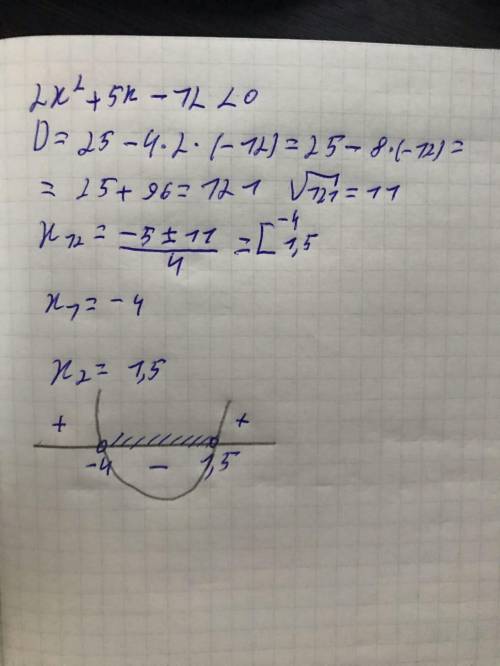 2x² + 5x - 12 < 0
D = 25 - 4 · 2 · (-12) = 25 - 8 · (-12) =
= 25 + 96 = 121 √121 = 11
x₁₂ = (-5 ± 11)/4 = [-4 1,5
x₁ = -4
x₂ = 1,5
+ +
-4 - 1,5